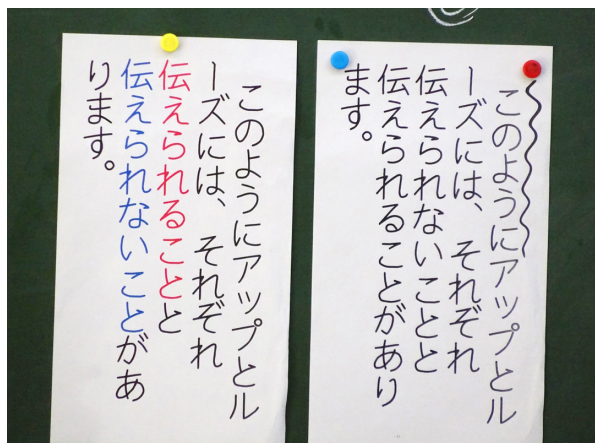 このようにアップとル
ーズには、それぞれ
伝えられないことと
伝えられることがあり
ます。
このようにアップとル
ーズには、それぞれ
伝えられることと
伝えられないことがあ
ります。